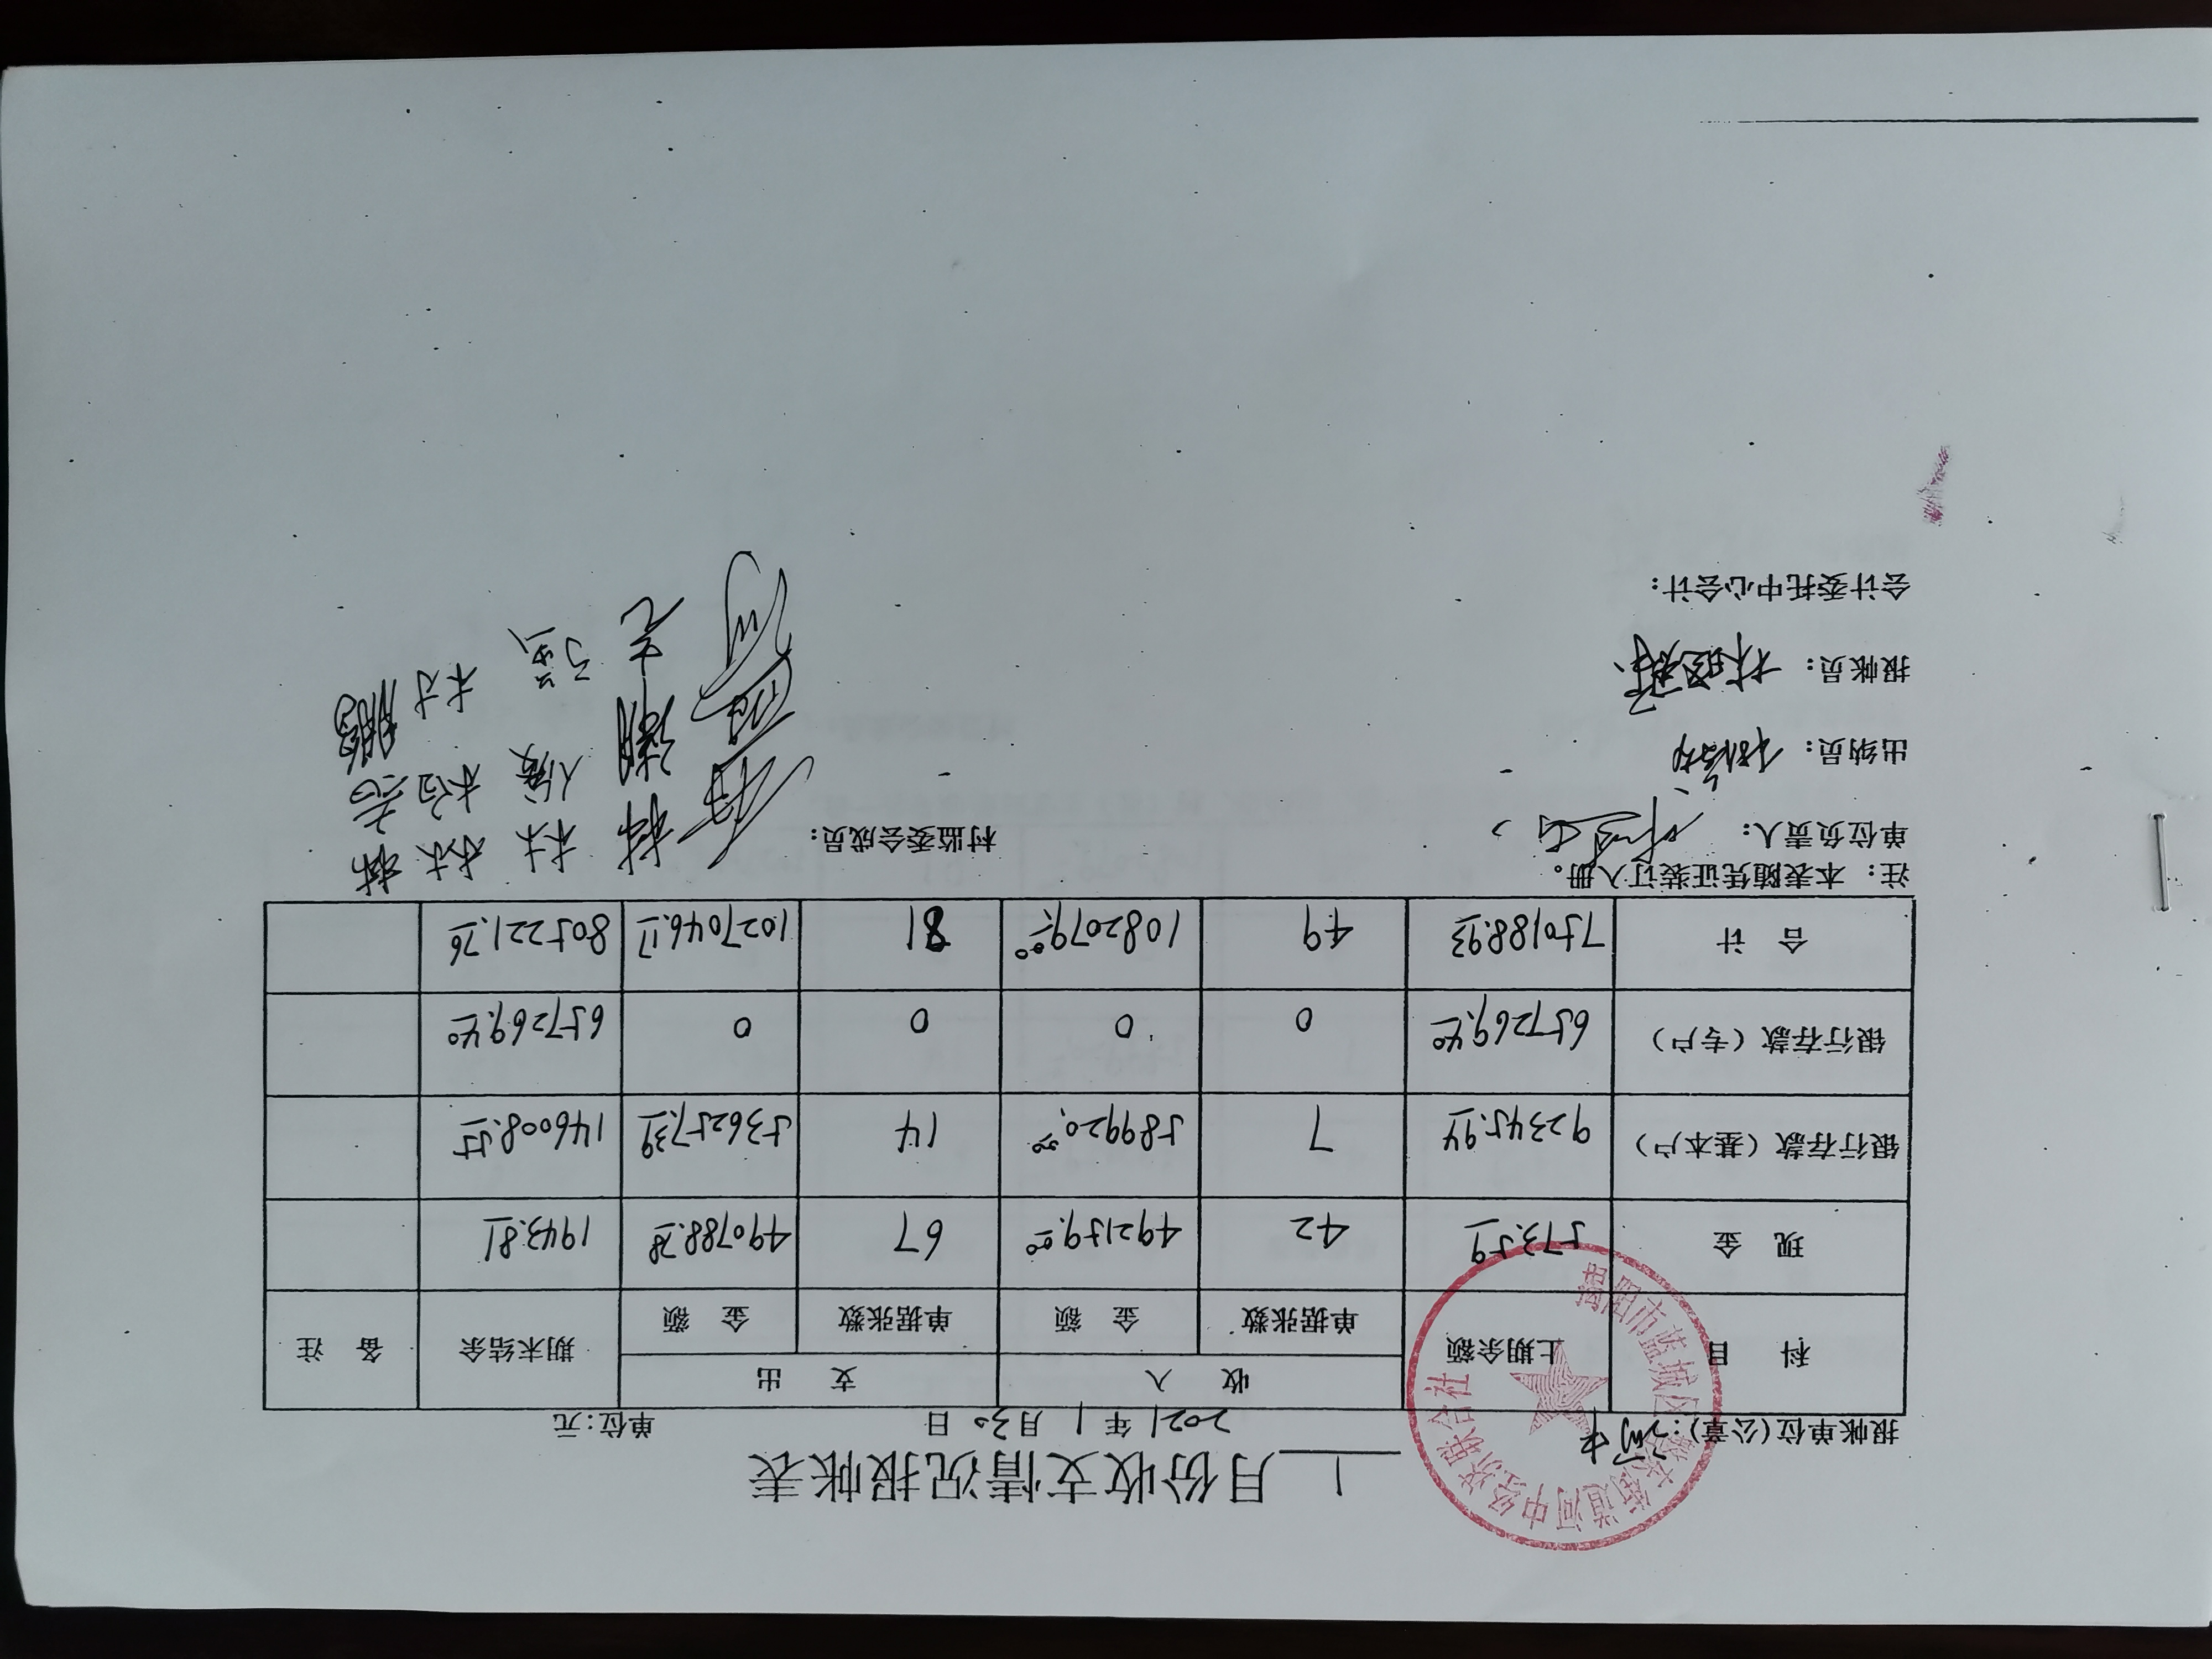 1月份收支情况报帐表
报帐单位(公章): 河中 2021年1月30日 单位:元
揭阳市蓝城区磐东街道河中经济联合社
科 目 上期余额 收 入 支 出 期末结余 备 注
单据张数 金 额 单据张数 金 额
现 金 573.59 42 492159.00 67 490788.78 1943.81
银行存款（基本户） 92345.94 7 589920.00 14 536257.39 146008.55
银行存款（专户） 657269.40 0 0 0 0 657269.40
合 计 750188.93 49 1082079.00 81 1027046.17 805221.76
注：本表随凭证装订入册。
单位负责人： 村监委会成员:
出纳员：
报帐员：
会计委托中心会计: